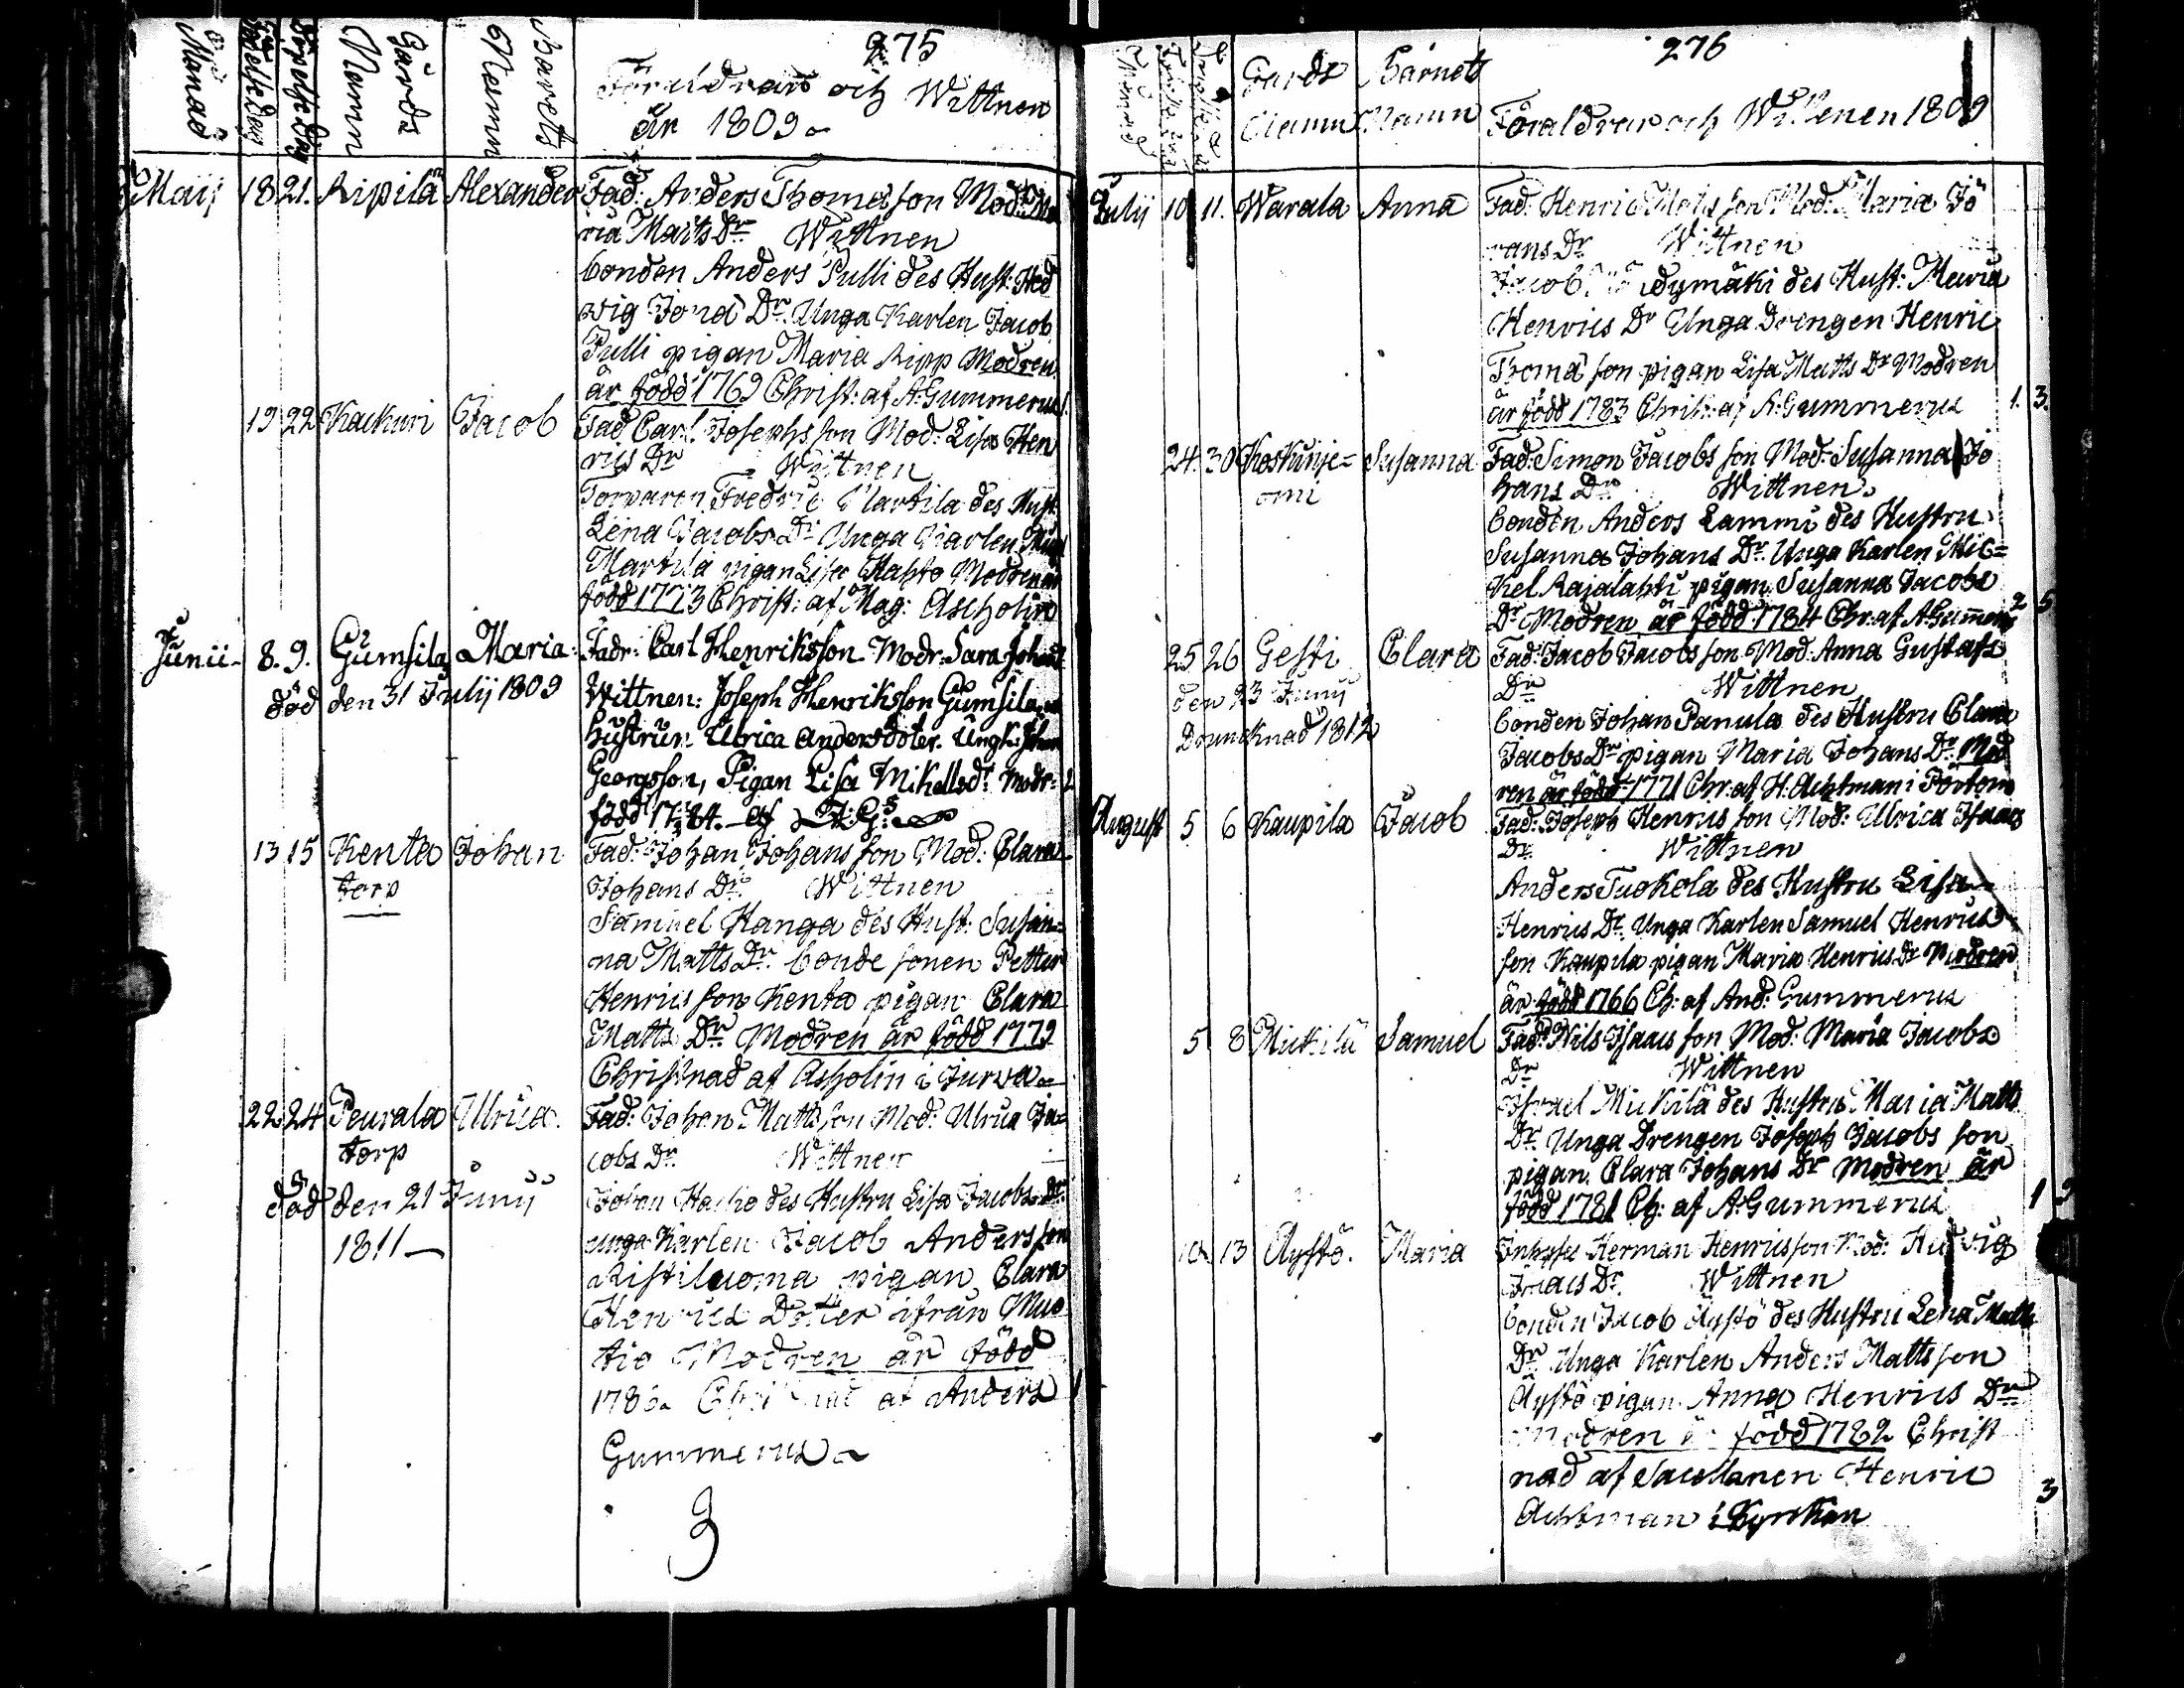 275
Månad
Födelse Dag
Döpelse Dag
Gårds Namn
Barnets Nemn
Föräldrars och Wittnen
år 1809
Maij 18 21. Ripila Alexander Fad: Anders Thomasson Mod: Ma
ria Matts Dr Wittnen
bonden Anders Pulli des Hust: Hed
wig Jona Dr. Unga Karlen Jacob
Pulli pigan Maria Ripp Modren
är född 1769 Christ: af A: Gummerus
19 22 Kaukuri Jacob Fad Carl Josephs son Mod: Lisa Hen
rics Dr Wittnen
Torparen Fredric Martila des Hust
Lena Jacobs Dr Unga Karlen
Martila pigan Lisa Hahto Modren är
född 1773 Christ: af Mag: Ascholin
Junii 8. 9. Gumsila Maria: Fadr: Carl Henriksson Modr: Sara Johansd
död den 31 Julij 1809 Wittnen: Joseph Henriksson Gumsila
Hustrun Ulrica Andersdoter. Ungk: Johan
Georgsson, Pigan Lisa Mikellsdr Modr:
född 1784. af A: G:s
13 15 Kenta Johan Fad: Johan Johans son Mod: Clara
torp Johans Dr Wittnen
Samuel Hanga des Hust: Susan=
na Matts Dr. bonde sonen Petter
Henrics son Kenta pigan Clara
Matts Dr Modren är född 1779
Christnad af Asholin i Jurva
22 24 Peurala Ulrica Fad: Johan Matts son Mod: Ulrica Ja=
torp cobs Dr. Wittnen
död den 21 Junij Johan Hahto des Hustru Lisa Jacobs Dr
unga Karlen Jacob Anders son
1811 Ristiluoma pigan Clara
Henrics Dotter ifrån Muo
tio Modren är född
1786 Christnad af Anders
Gummerus
3
276
Månad
Gards Namn
Barnets Namn
Föräldrar och Wittnen 1809
Julij 10 11. Warala Anna Fad: Henric Mats son Mod: Maria Jö
rans Dr Wittnen
Jacob des Hust: Maria
Henrics Dr Unga Drengen Henric
Thoma son pigan Lisa Matts Dr Modren
är född 1783 Christ: af A: Gummerus 1. 3.
24. 30 Koskinje= Susanna Fad: Simon Jacobs son Mod: Susanna Jo
omi hans Dr Wittnen
bonden Anders Lammi des Hustru
Susanna Johans Dr. Unga Karlen Mic=
kel Rajalahti pigan Susanna Jacobs
Dr Modren är född 1784 Chr: af A Gummerus 2 5
25 26 Gesti Clara Fad: Jacob Jacobs son Mod: Anna Gustafs
den 23 Junij Dr Wittnen
Drunknad 1812 bonden Johan Panula des Hustru Clara
Jacobs Dr pigan Maria Johans Dr. Mod
ren är född 1771 Chr: af H. Achtman i Pörtom
August 5 6 Kaupila Jacob Fad: Joseph Henrics son Mod: Ulrica Isaacs
Dr. Wittnen
Anders Tuokola des Hustru Lisa
Henrics Dr. Unga Karlen Samuel Henrics
son Kaupila pigan Maria Henrics Dr Modren
är född 1766 Ch: af And: Gummerus
5 8 Mickilä Samuel Fad: Nils Isaacs son Mod: Maria Jacobs
Dr Wittnen
Israel Mickilä des Hustru Maria Matts
Dr Unga Drengen Joseph Jacobs son
pigan Clara Johans Dr Modren är
född 1781 Ch: af A: Gummerus
10 13 Äystö. Maria Inhyses Herman Henricsson Mod: Hedvig
Isaacs Dr. Wittnen
bonden Jacob Äystö des Hustru Lena Matts
Dr. Unga Karlen Anders Matts son
Äystö pigan Anna Henrics Dr
Modren är född 1782 Christ
nad af Sacellanen Henric
Achtman i Kyrkan 3